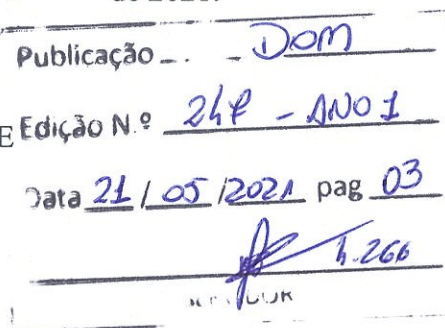 de 2021.
Publicação DOM
E Edição N.º - ANO 1
Data 21 / 05 /2021 pag 03
4.266